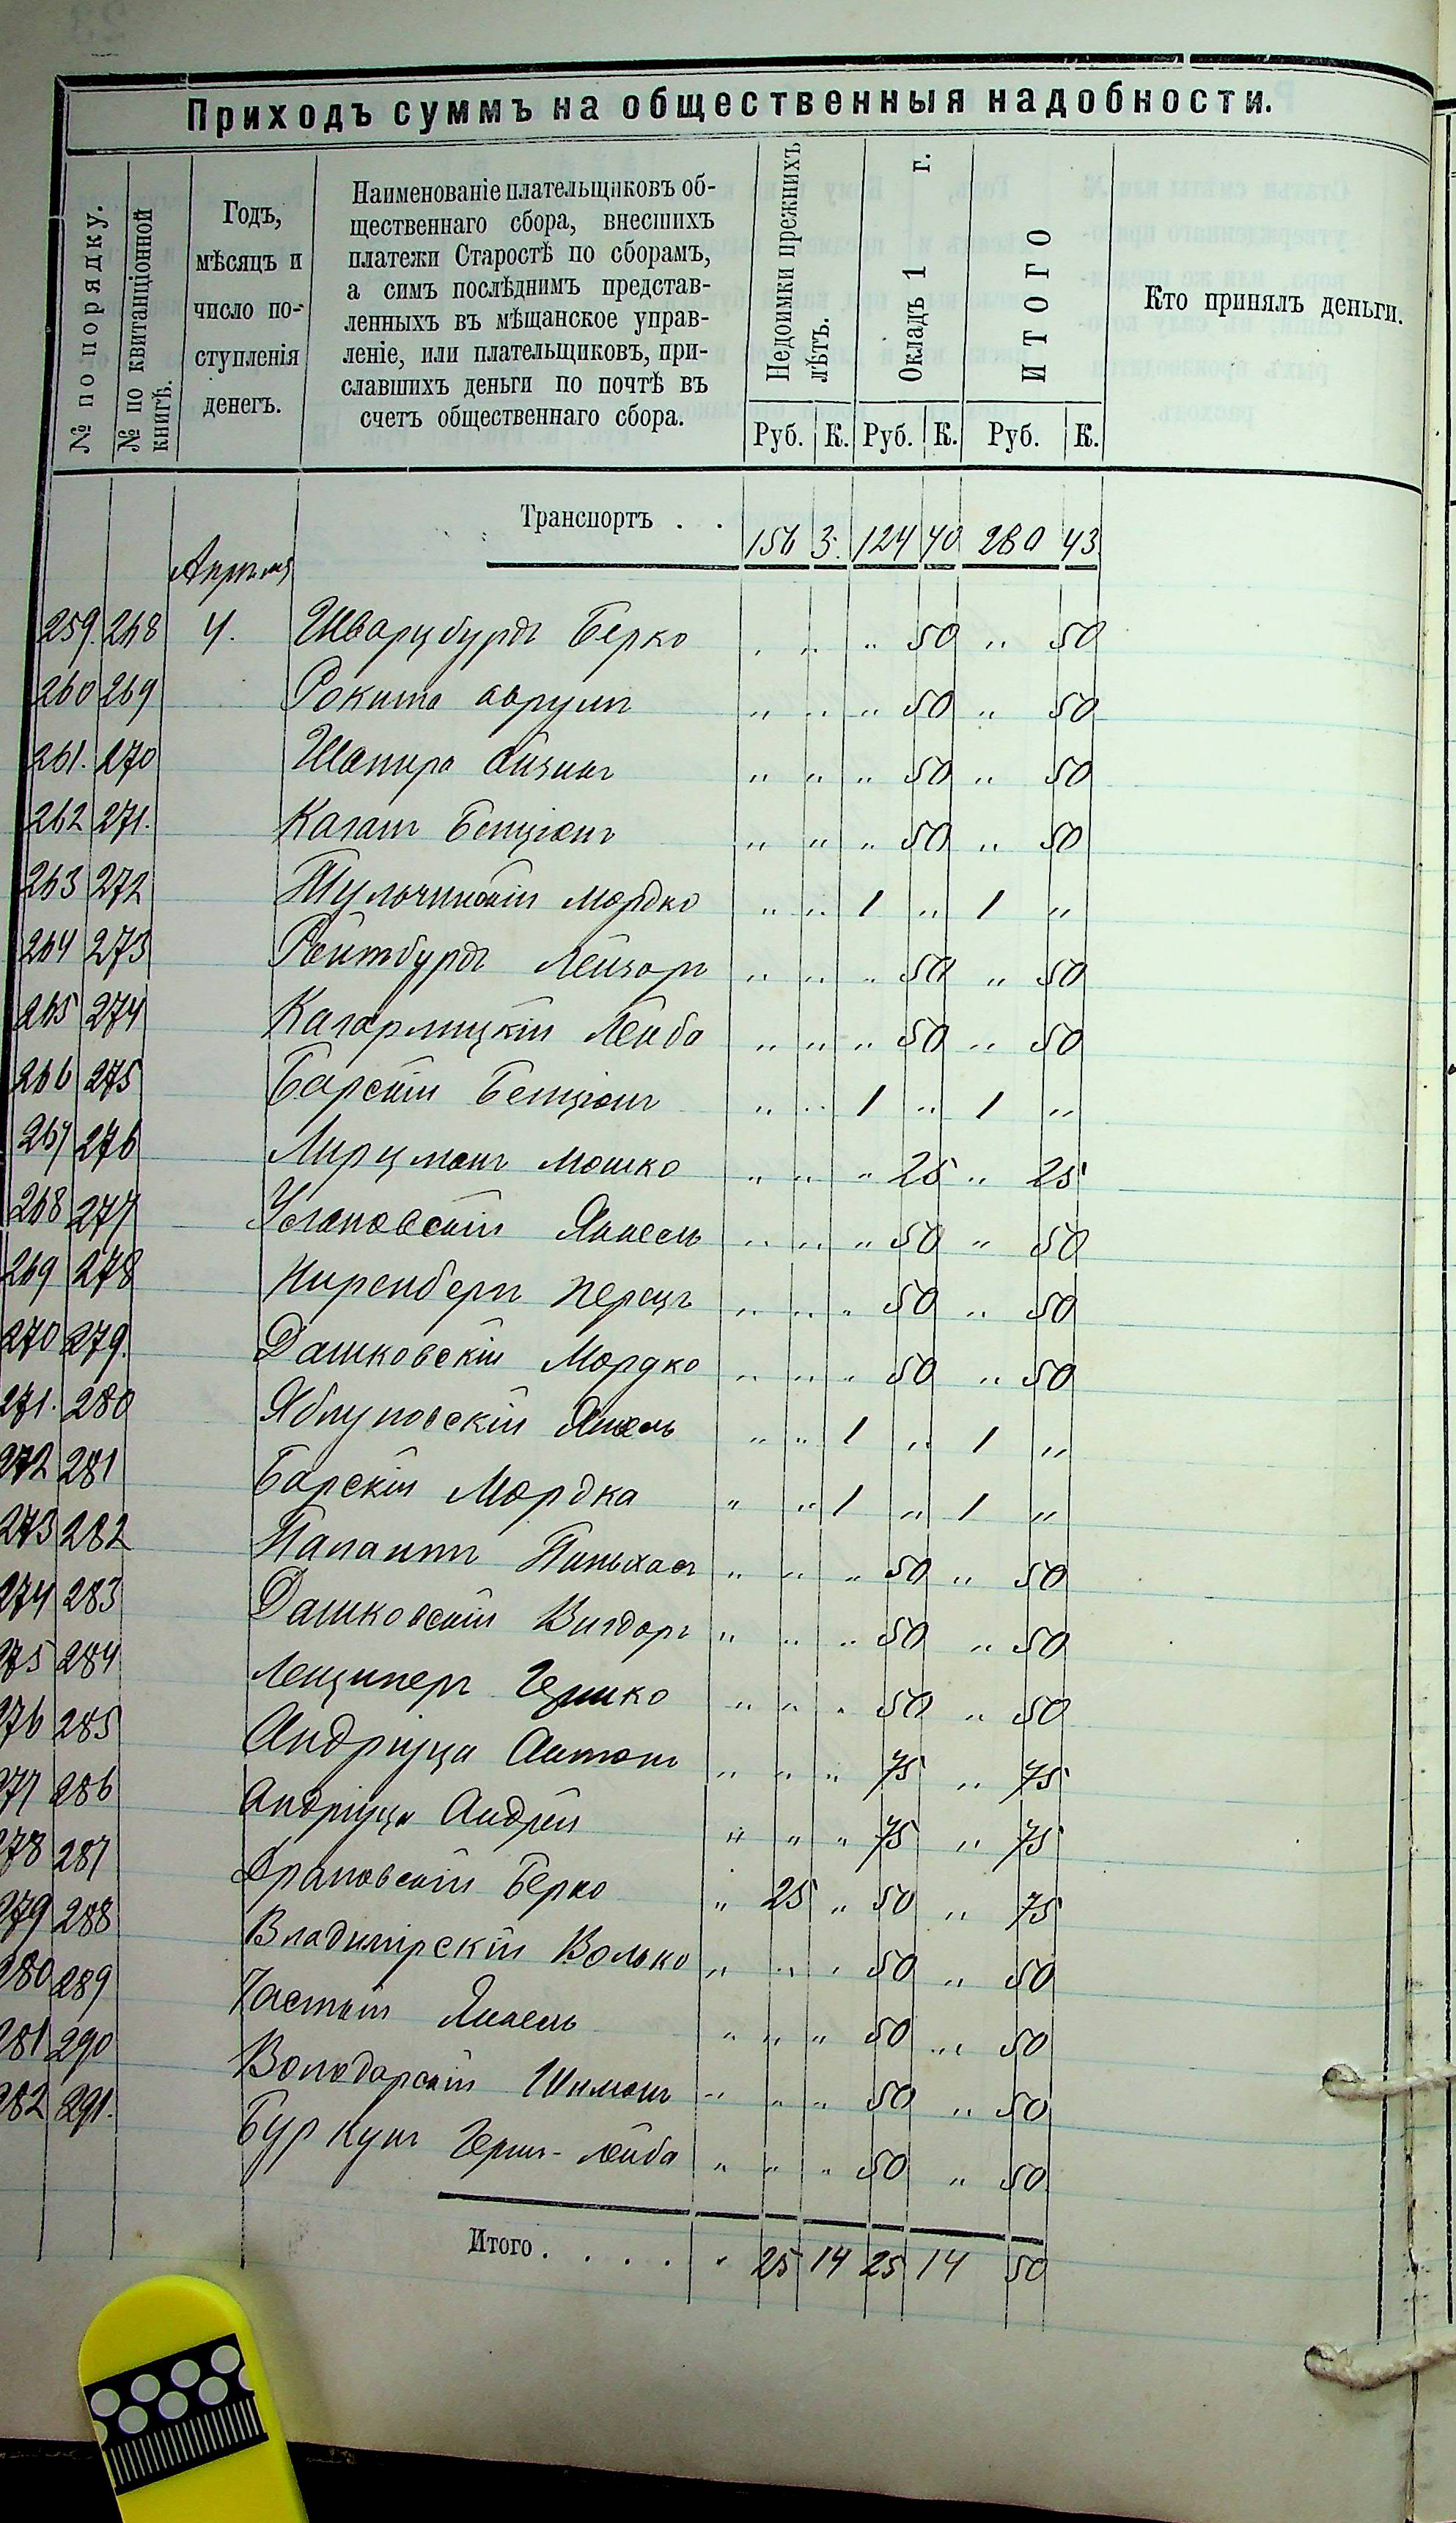 Приходъ суммъ на общественныя надобности.
№ по порядку.
№ по квитанціонной книгѣ.
Годъ,
мѣсяцъ и
число по-
ступленія
денегъ.
Наименованіе плательщиковъ об-
щественнаго сбора, внесшихъ
платежи Старостѣ по сборамъ,
а симъ послѣднимъ представ-
ленныхъ въ мѣщанское управ-
леніе, или плательщиковъ, при-
славшихъ деньги по почтѣ въ
счетъ общественнаго сбора.
Недоимки прежнихъ лѣтъ.
Окладъ 1 г.
ИТОГО
Кто принялъ деньги.
Руб. К. Руб. К. Руб. К.
Транспортъ . . 156 3. 124 40 280 43
Апрѣля
259. 268 4. Шварцбурдъ Берко " " " 50 " 50
260 269 Рокита Аврумъ " " " 50 " 50
261. 270 Шапира Айзикъ " " " 50 " 50
262 271. Каганъ Бенціонъ " " " 50 " 50
263 272 Тульчинскій Мордко " " 1 " 1 "
264 273 Ройтбурдъ Лейзоръ " " " 50 " 50
265 274 Кагарлицкій Лейба " " " 50 " 50
266 275 Барскій Бенціонъ " " 1 " 1 "
267 276 Лирцманъ Мошко " " " 25 " 25
268 277 Янкель " " " 50 " 50
269 278 Ниренбергъ Перецъ " " " 50 " 50
270 279. Дашковскій Мордко " " " 50 " 50
271. 280 Яблуновскій Янкель " " 1 " 1 "
272 281 Барскій Мордка " " 1 " 1 "
273 282 Палантъ Пиньхасъ " " " 50 " 50
274 283 Дашковскій Вигдоръ " " " 50 " 50
275 284 Ленцнеръ Гершко " " " 50 " 50
276 285 Андріуца Антонъ " " " 75 " 75
277 286 Андріуца Андрей " " " 75 " 75
278 287 Берко " 25 " 50 " 75
279 288 Владимірскій Волько " " " 50 " 50
280 289 Частый Янкель " " " 50 " 50
281 290 Володарскій Шимонъ " " " 50 " 50
282 291. Буркунъ Герш-Лейба " " " 50 " 50
Итого . . . . . 25 14 25 14 50